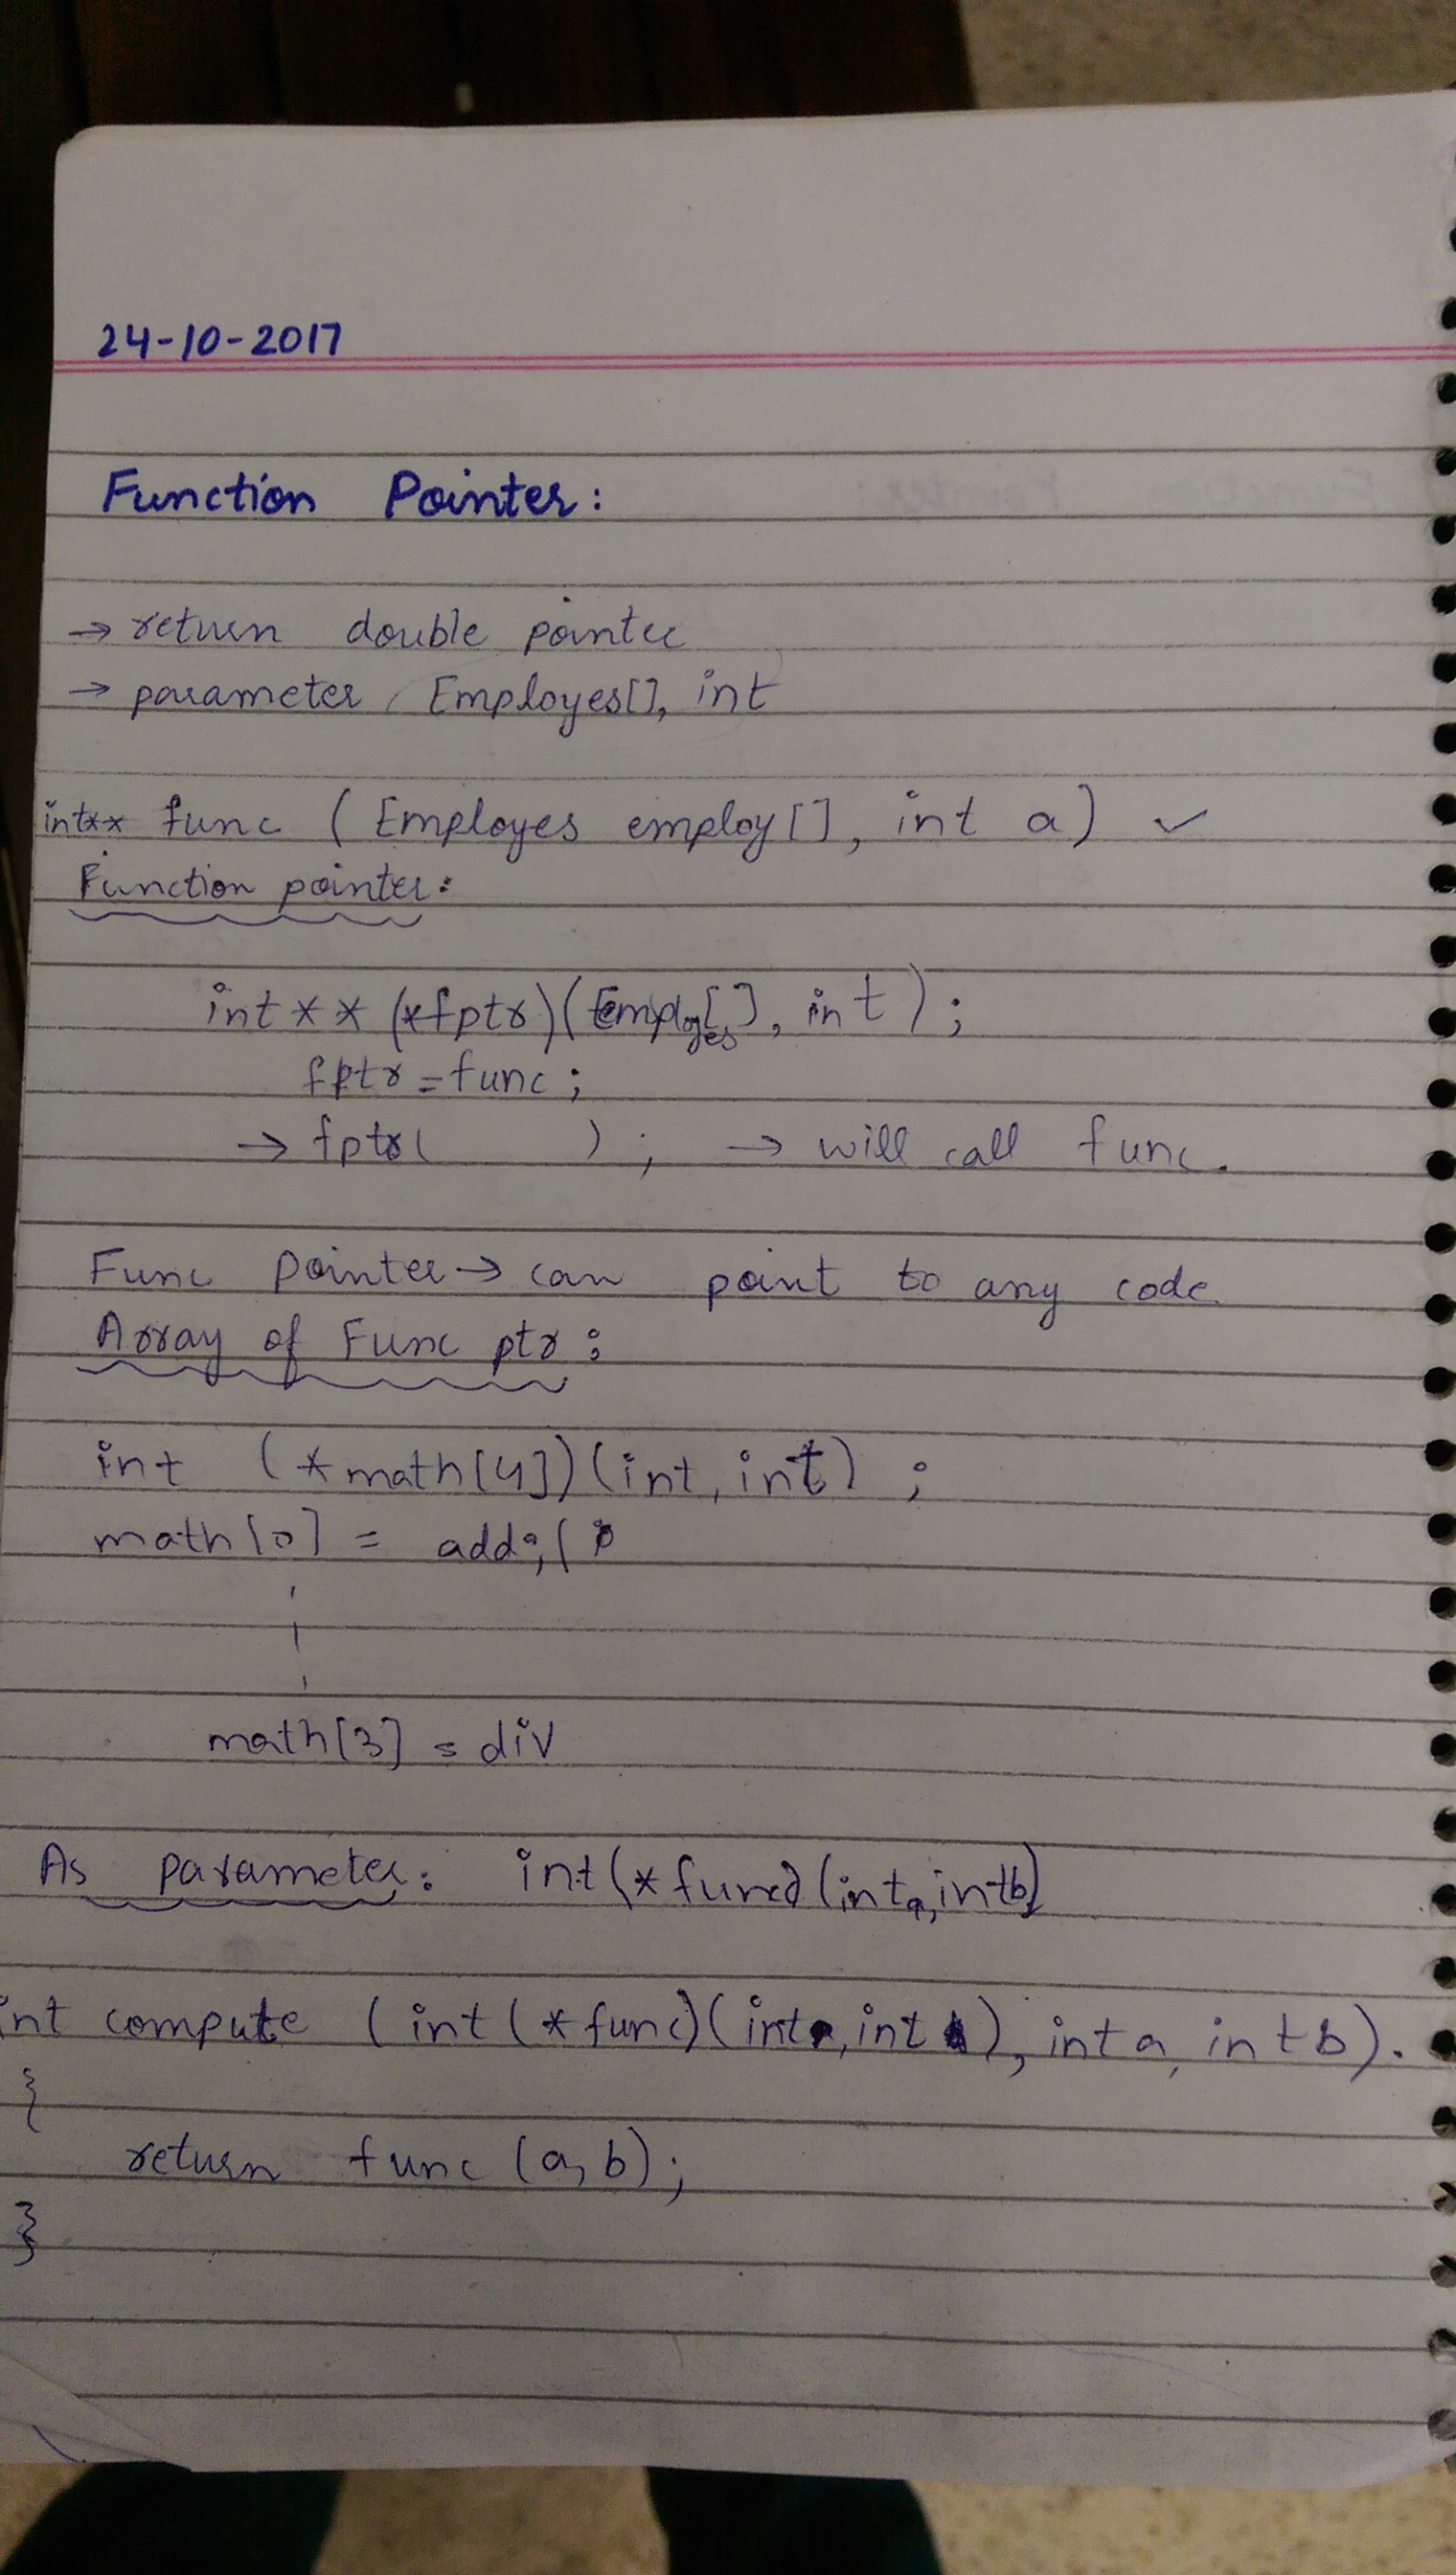 24-10-2017
Function Pointer:
→ return double pointer
→ parameter Employes[], int
int** func ( Employes employ[], int a) ✓
Function pointer:
int ** (*fptr)(Employes[], int);
fptr = func;
→ fptr( ); → will call func.
Func Pointer → can point to any code
Array of Func ptr:
int (*math[4])(int, int) ;
math[0] = add;(
math[3] = div
As parameter: int(*func)(int a, int b)
int compute (int (*func)(int, int), int a, int b).
{
return func (a, b);
}